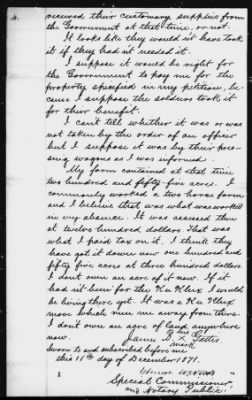 4.
received their customary supplies from
the Government at that time, or not.
It looks like they would n't have took
it if they had n't needed it.
I suppose it would be right for
the Government to pay me for the
property specified in my petition, be-
cause I suppose the soldiers took it
for their benefit.
I can't tell whether it was or was
not taken by the order of an officer
but I suppose it was by their press-
ing wagons as I was informed.
My farm contained at that time
two hundred and fifty five acres. I
commonly worked a two horse farm
and I believe that was what was worked
in my absence. It was assessed then
at twelve hundred dollars. That was
what I paid tax on it. I think they
have got it down now one hundred and
fifty five acres at three hundred dollars
I don't own an acre of it now. If it
had n't been for the Ku Klux I would
be living there yet. It was a Ku Klux
move which run me away from there.
I don't own an acre of land anywhere
now.
James D. his x mark Gattis
Sworn to and subscribed before me
this 11th day of December 1871.
Special Commissioner
and Notary Public.